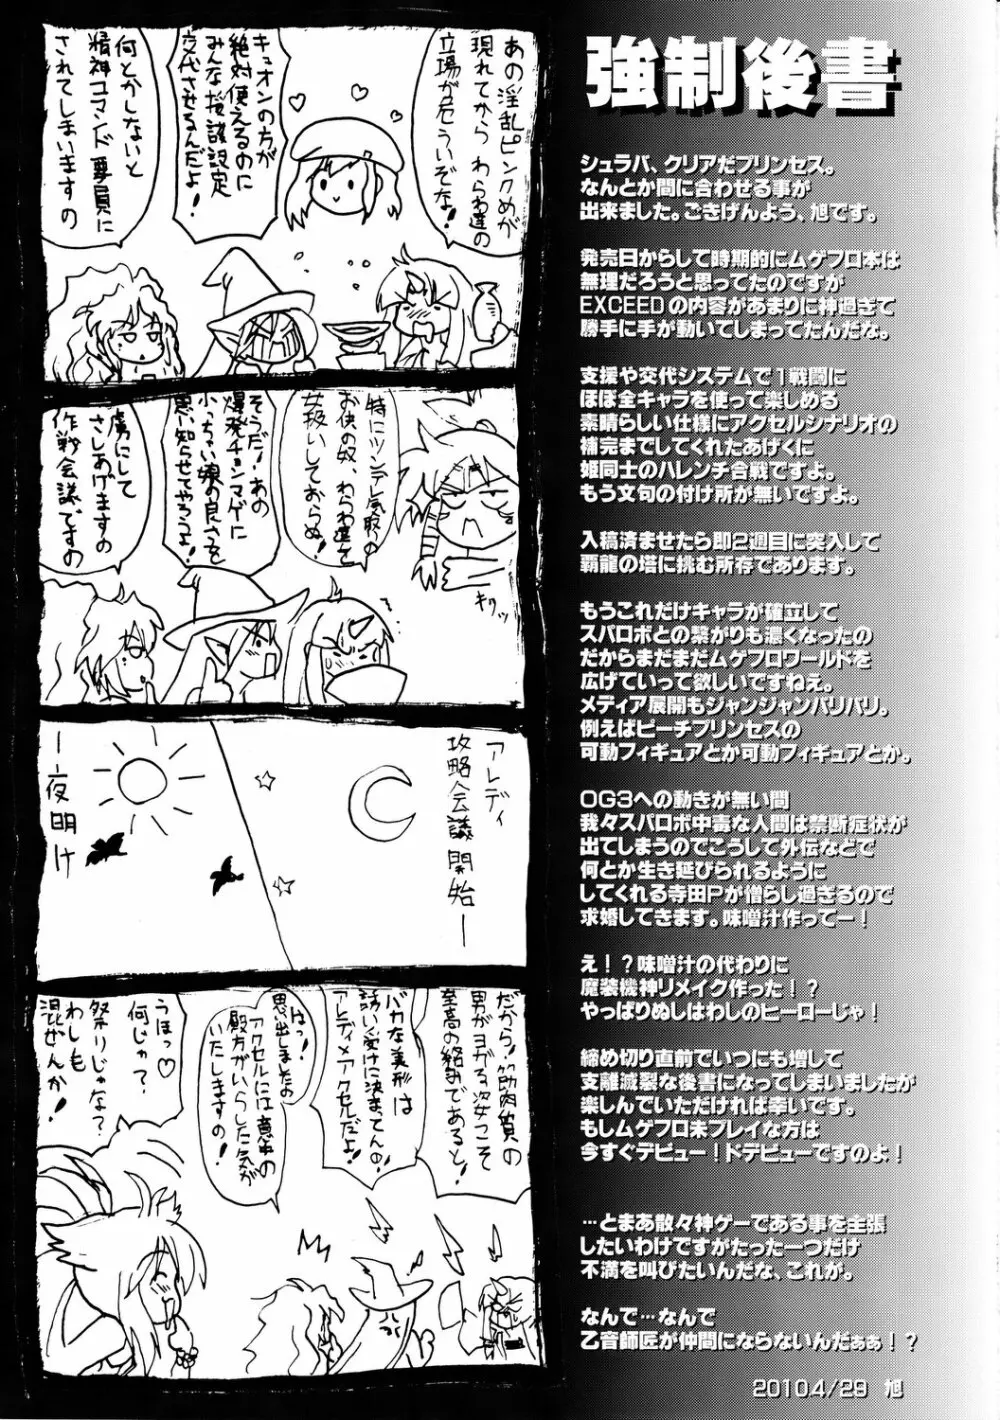 強制後書
シュラバ、クリアだプリンセス。
なんとか間に合わせる事が
出来ました。ごきげんよう、旭です。
発売日からして時期的にムゲフロ本は
無理だろうと思ってたのですが
EXCEEDの内容があまりに神過ぎて
勝手に手が動いてしまってたんだな。
支援や交代システムで1戦闘に
ほぼ全キャラを使って楽しめる
素晴らしい仕様にアクセルシナリオの
補完までしてくれたあげくに
姫同士のハレンチ合戦ですよ。
もう文句の付け所が無いですよ。
入稿済ませたら即2週目に突入して
覇龍の塔に挑む所存であります。
もうこれだけキャラが確立して
スパロボとの繋がりも濃くなったの
だからまだまだムゲフロワールドを
広げていって欲しいですねえ。
メディア展開もジャンジャンバリバリ。
例えばピーチプリンセスの
可動フィギュアとか可動フィギュアとか。
OG3への動きが無い間
我々スパロボ中毒な人間は禁断症状が
出てしまうのでこうして外伝などで
何とか生き延びられるように
してくれる寺田Pが憎らし過ぎるので
求婚してきます。味噌汁作ってー!
え!?味噌汁の代わりに
魔装機神リメイク作った!?
やっぱりぬしはわしのヒーローじゃ!
締め切り直前でいつにも増して
支離滅裂な後書になってしまいましたが
楽しんでいただければ幸いです。
もしムゲフロ未プレイな方は
今すぐデビュー!ドデビューですのよ!
…とまあ散々神ゲーである事を主張
したいわけですがたった一つだけ
不満を叫びたいんだな、これが。
なんで…なんで
乙音師匠が仲間にならないんだぁぁ!?
2010.4/29 旭
あの淫乱ピンクめが
現れてから わらわ達の
立場が危ういぞな!
キュオンの方が
絶対使えるのに
みんな桜談設定
交代させるんだよ!
何とかしないと
精神コマンド要員に
されてしまいますの
特にツンデレ気取の
お侠の奴、わらわ達を
女扱いしておらぬ!
キリッ
そうだ!あの
爆発チョンマゲに
小っちゃい娘の良さを
思い知らせてやろうよ!
虜にして
さしあげますの
作戦会議ですの
アレディ
攻略会議開始ー
ー夜明け
だから!筋肉質の
男がヨガる姿こそ
至高の
であると!
バカな美形は
誘い受けに決まってんの!
アレディ×アクセルだよ!
はっ!
思い出しましたの
アクセルには意中の
殿方がいらした気が
いたしますの!
うほっ♡
何じゃ?
祭りじゃな?
わしも
混ぜんか!